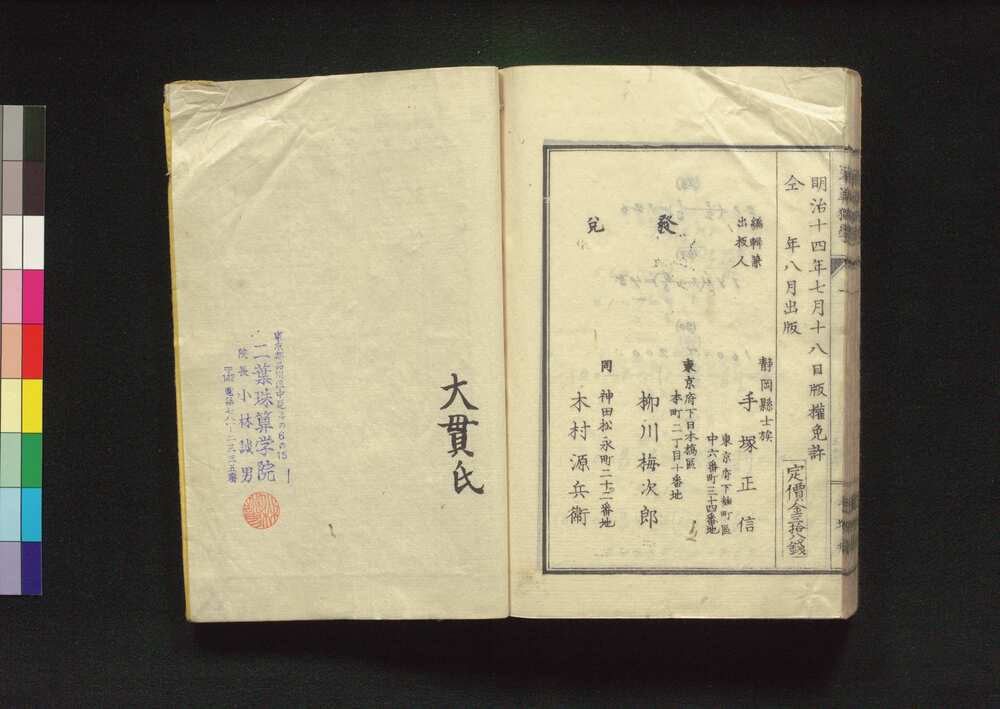 明治十四年七月十八日版權免許
仝　年八月出版
定價金三拾八錢
編輯兼
出板人
靜岡縣士族
手塚正信
東京府下麹町區
中六番町三十四番地
發
兌
東京府下日本橋區
本町二丁目十番地
柳川梅次郎
同　神田松永町二十二番地
木村源兵衞
大貫氏
二葉珠算学院
院長　小林誠男